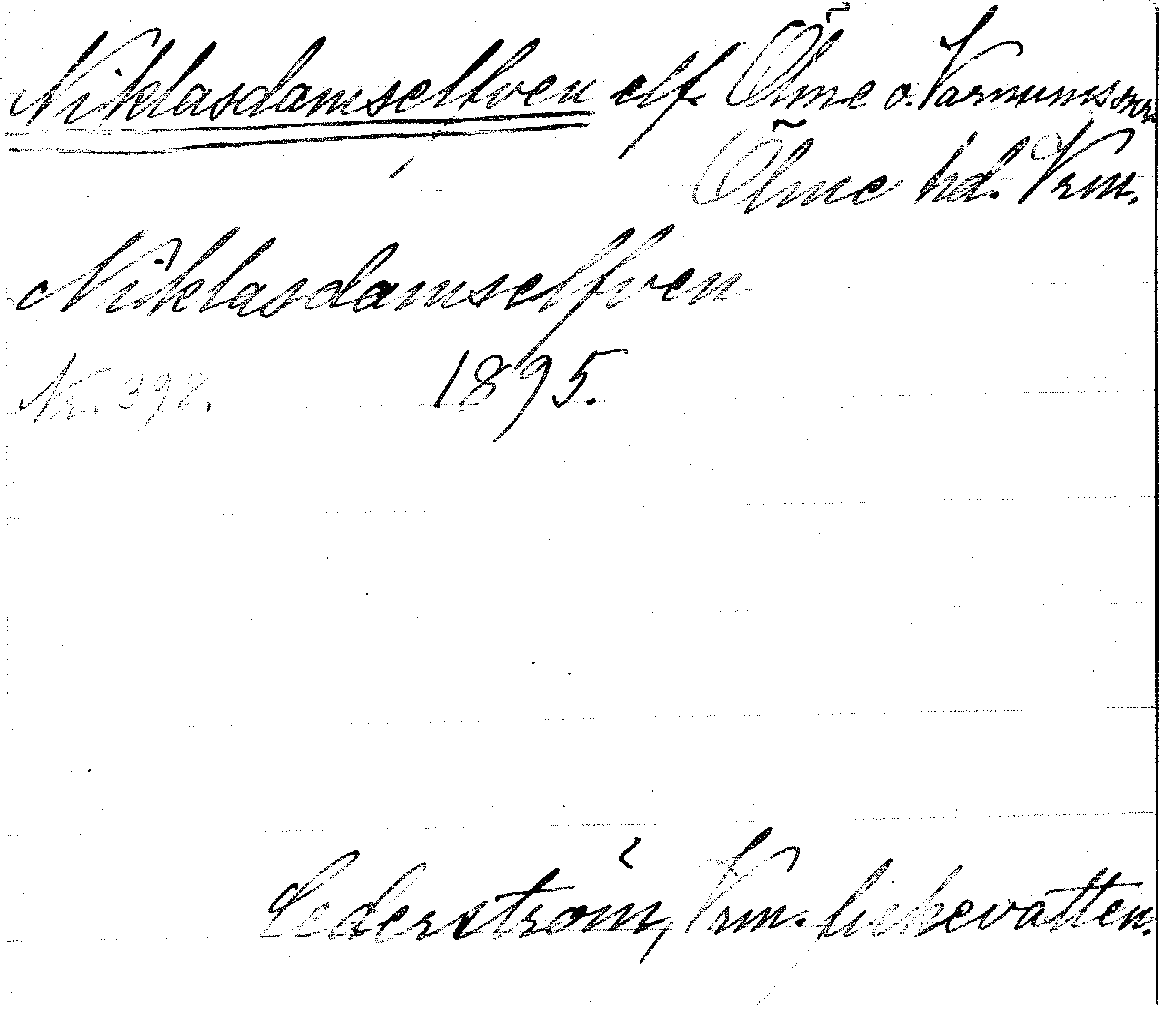 Niklasdamselfven elf. Ölme o. Varnums snr.
Ölme hd. Vrm.
Niklasdamselfven
Nr. 398. 1895.
Cederström, Vrm. fiskevatten.